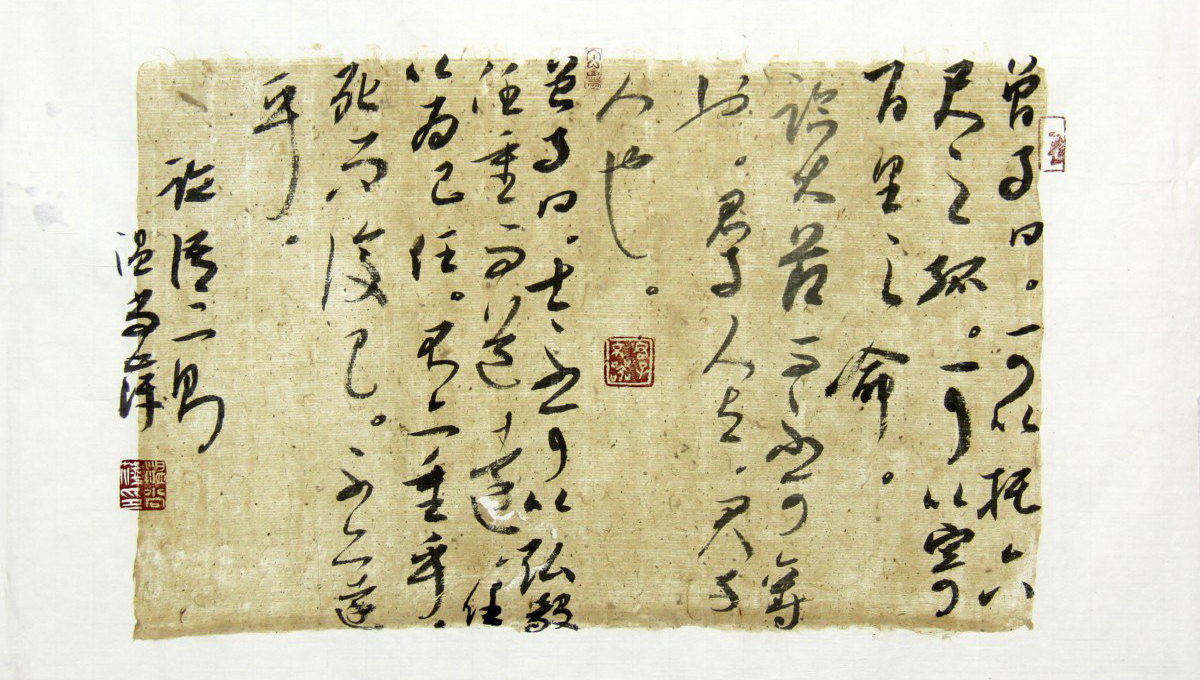 曾子曰。可以托六
尺之孤。可以寄
百里之命。
临大节而不可夺
也。君子人与，君子
人也。
曾子曰。士不可以弘毅
任重而道遠 仁
以为己任。不亦重乎。
死而後已。不亦遠
乎。
论语二则
温尚